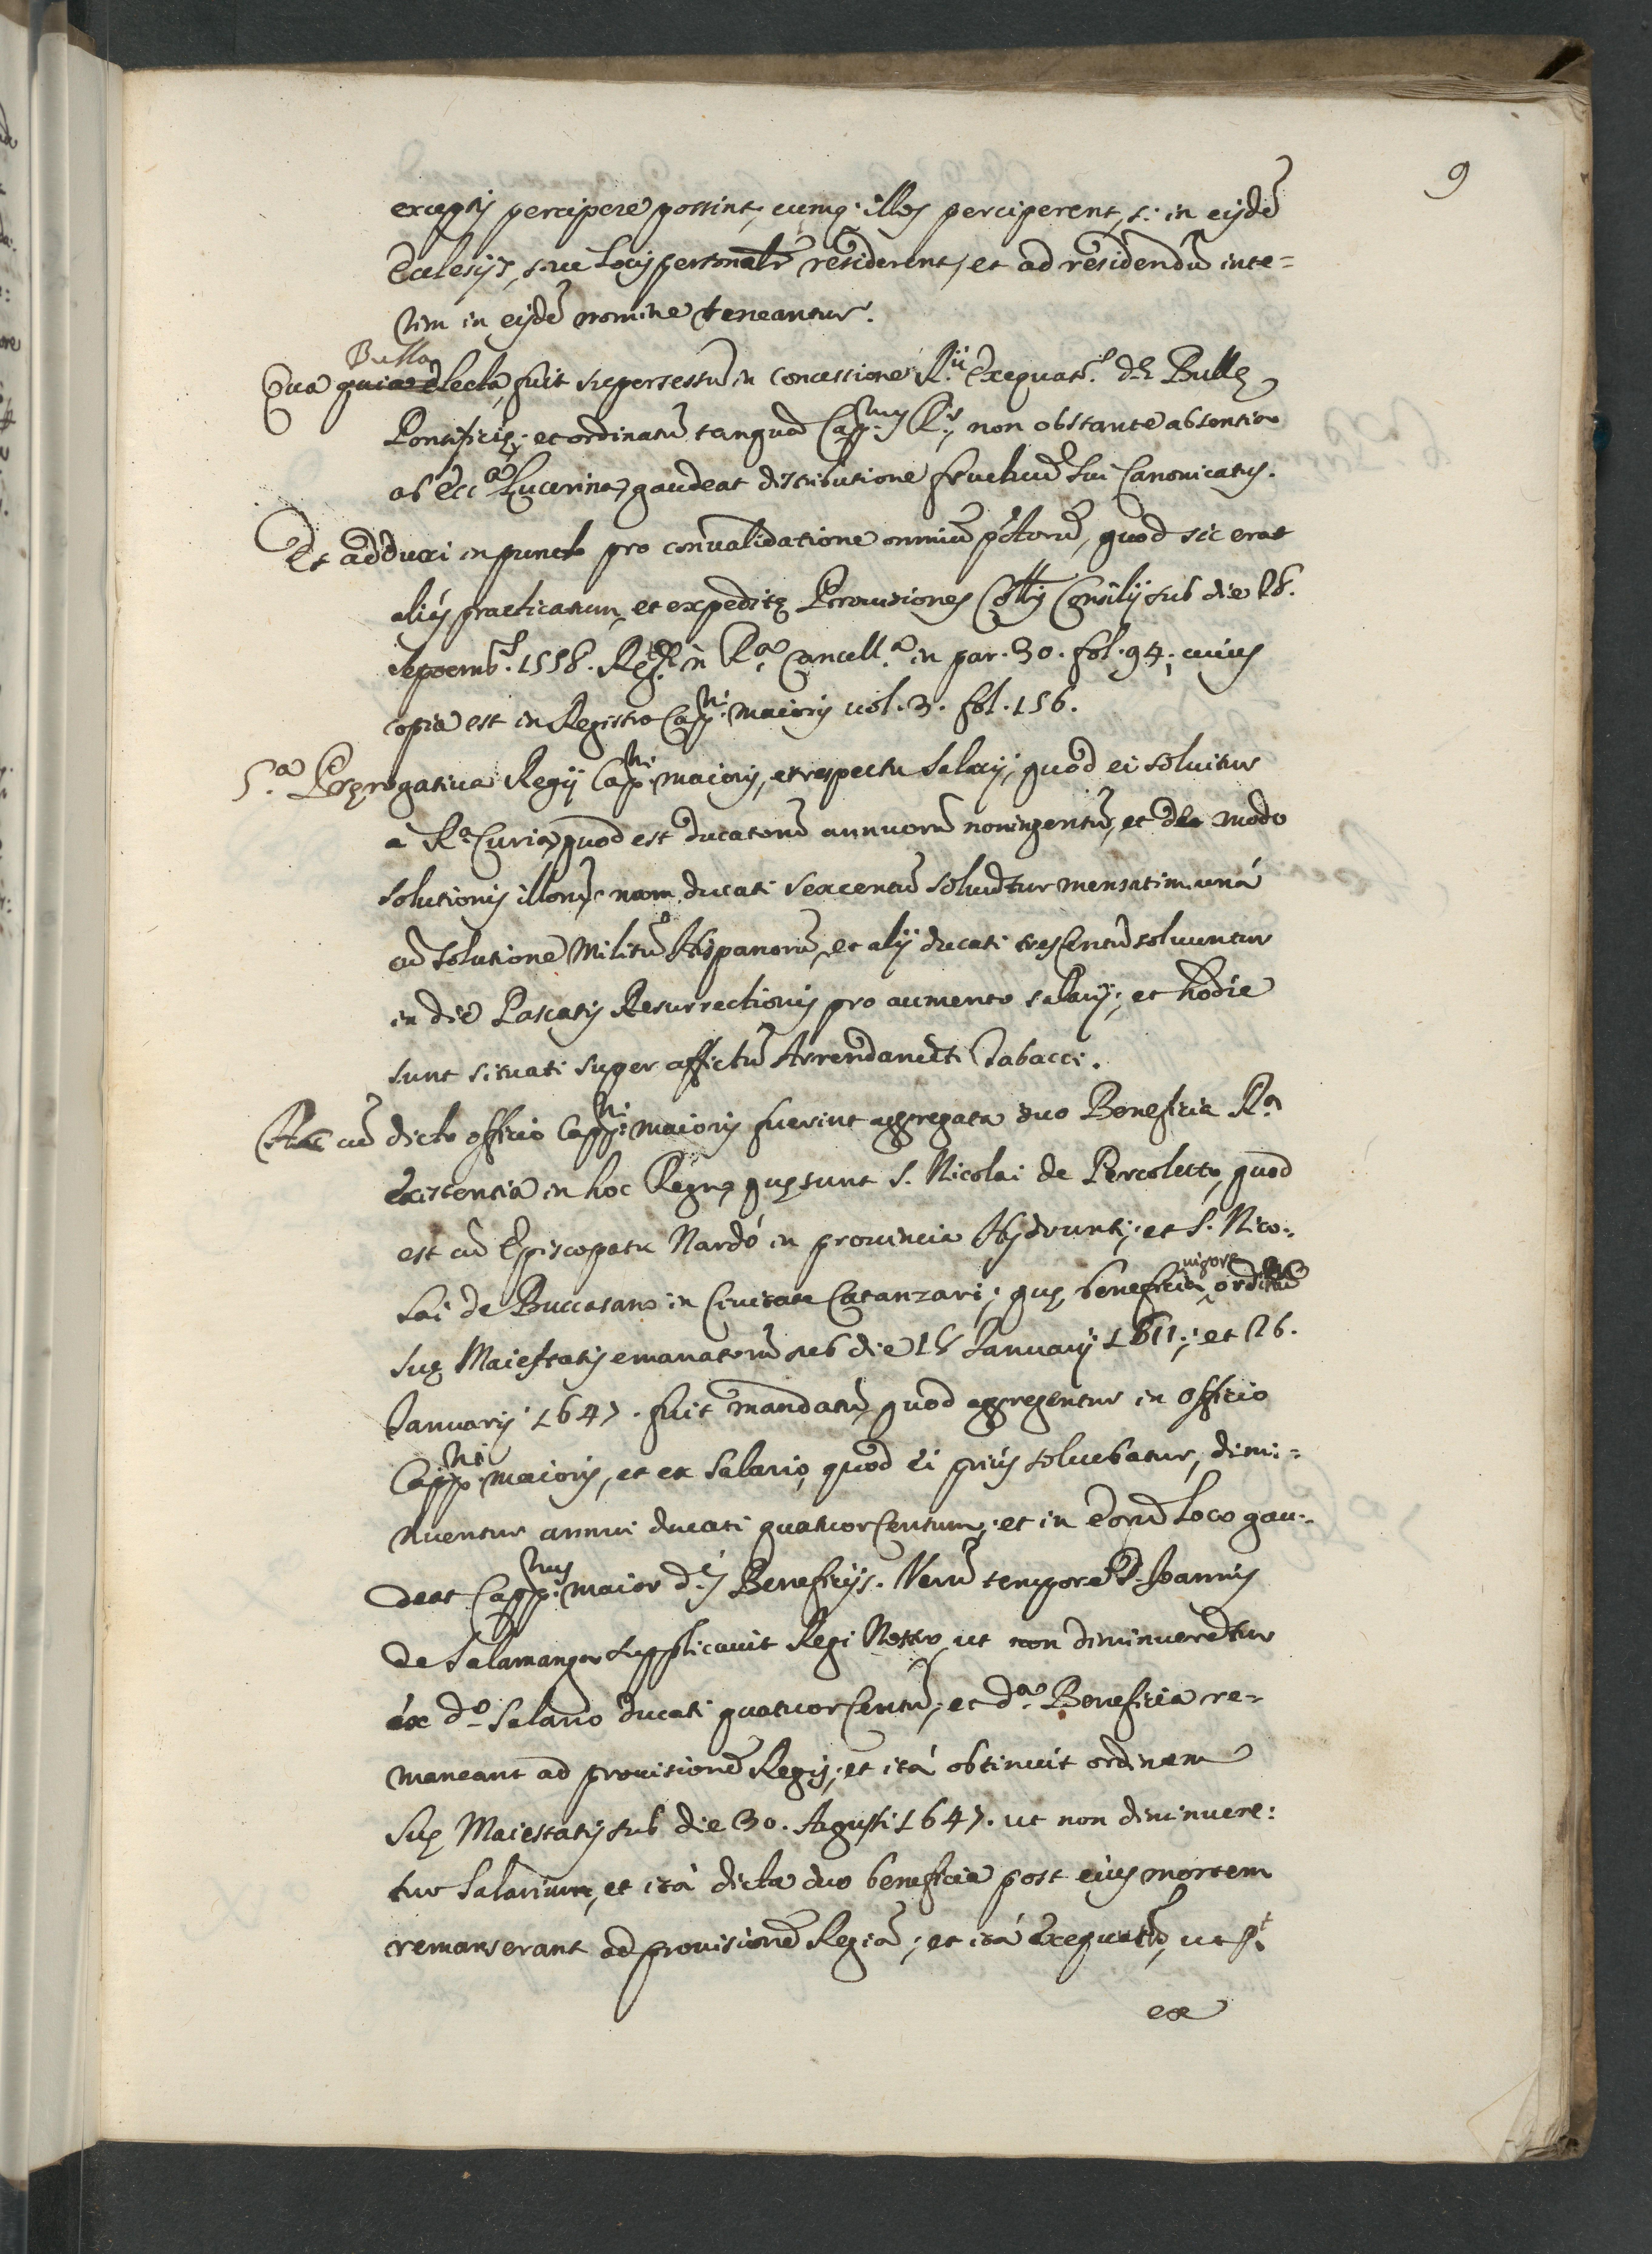 9
exceptis percipere possint, eumq. illos perciperent, s. in eisdẽ
Ecclesijs, siue Locis personalr̃ residerent, et ad residendũ inte=
rim in eisdẽ nomine teneantur.
Bulla
Qua lecta, fuit supersessũ in concessione R.ij Exequat.r dę Bullę
Pontificię; et ordinatũ tanquã Capp.nus R.s, non obstante absentia
ab Ecc.a Lucerina, gaudeat distributione fructuũ sui Canonicatus.
Et adduxi in puncto pro convalidatione omniũ p̃ctorũ, quod sic erat
aliàs practicatum, et expeditę Prouisiones Coll̃lis Consilij sub die 28.
septemb.s 1558. Reg.te in R.a Cancell.a in par. 30. fol. 94; cuius
copia est in Registro Capp.ni maioris vol. 3. fol. 156.
5.a Pręrogatiua Regij Capp.ni maioris, et respectu Salarij, quod ei soluitur
a R.a Curia, quod est ducatorũ annuorũ noningentũ, et de modo
solutionis illorũ, nam ducati sexcentũ soluũtur mensatim unà
cũ solutione Militũ Hispanorũ, et alij ducati tres Centũ soluuntur
in die Pascatis Resurrectionis pro aumento salarij; et hodie
sunt situati super affictũ Arrendamẽti Tabacci.
Hac cũ dicto officio Capp.ni maioris fuerint aggregata duo Beneficia R.a
existentia in hoc Regno, quę sunt S. Nicolai de Percoletto, quod
est cũ Episcopatu Nardò in prouincia Hydrunti; et S. Nico=
lai de Buccasano in Ciuitate Catanzari; quę beneficia vigore ordinũ
Suę Maiestatis emanatorũ sub die 18 Januarij 1611; et 26.
Januarij 1647. fuit mandatũ quod aggregentur in Officio
Capp.ni maioris, et ex Salario, quod ei priùs soluebatur, dimi=
nuentur annui ducati quatuor Centum; et in eorũ Loco gau=
deat Capp.nus maior d.is Beneficijs. Verũ tempore D. Joannis
de Salamanga supplicauit Regi Nostro, ut non diminuerẽtur
ex d.o Salario ducati quatuor Centũ; et d.a Beneficia re=
maneant ad prouisionẽ Regis; et ità obtinuit ordinem
Suę Maiestatis sub die 30. Agusti 1647. ut non diminuere=
tur Salarium, et ità dicta duo beneficia post eius mortem
remanserant ad prouisionẽ Regiã; et ità exequutũ, ut p.t
ex